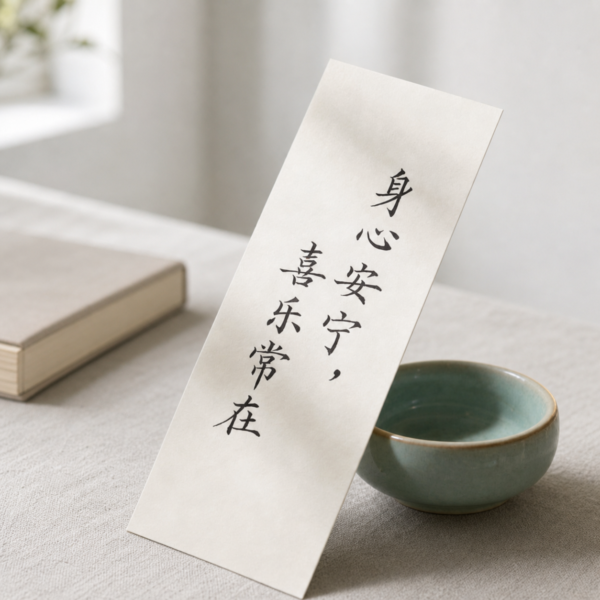 身心安宁，
喜乐常在